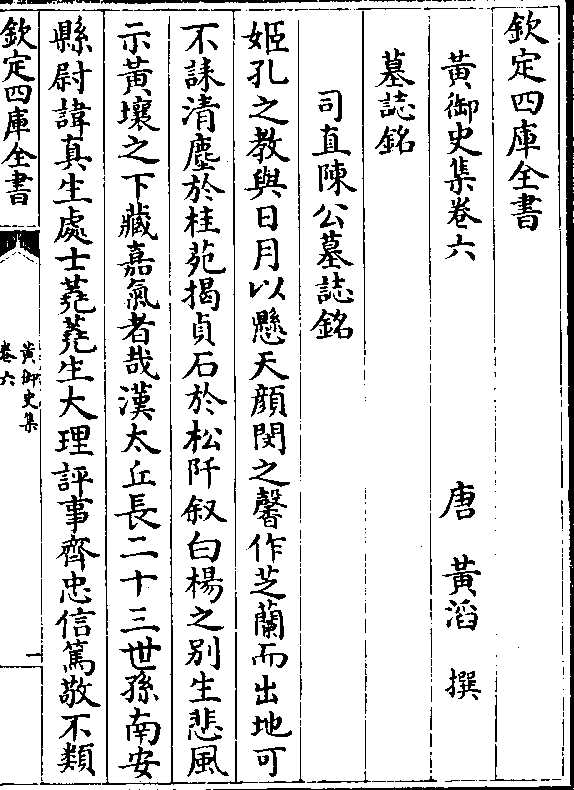 欽定四庫全書
黃御史集卷六
唐　黃滔　撰
墓誌銘
司直陳公墓誌銘
姬孔之教與日月以懸天顔閔之馨作芝蘭而出地可
不誄清塵於桂苑揭貞石於松阡叙白楊之別生悲風
示黃壤之下藏嘉氣者哉漢太丘長二十三世孫南安
縣尉諱真生處士蕘蕘生大理評事齊忠信篤敬不類
欽定四庫全書
黃御史集
卷六
一